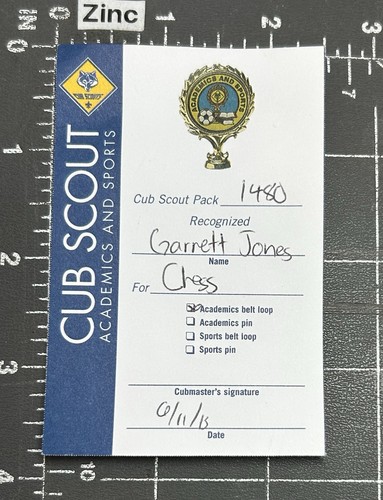 Zinc
IN
0
1
2
3
1
2
3
4
10
CUB SCOUT
ACADEMICS AND SPORTS
CUB SCOUTS
ACADEMICS AND SPORTS
Cub Scout Pack 1480
Recognized
Garrett Jones
Name
For Chess
Academics belt loop
Academics pin
Sports belt loop
Sports pin
Cubmaster's signature
6/11/13
Date